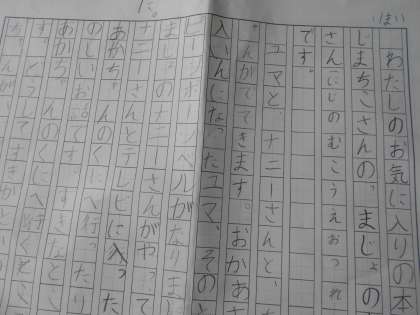 わたしのお気に入りの本
しまちこさんの、まじょの
さんにじのむこうえおつれ
です。
ユマと、ナニーさんと、
んがでてきます。おかあさ
入いんになったユマ、そのと
ピーンポーンベルがなりまし
まじょのナニーさんがやって
ナニーさんとテレビに入った
あかちゃんのくにへ行ったり
のしいお話です。すきなとこ
あかちゃんのくにへ行くとこ
す。